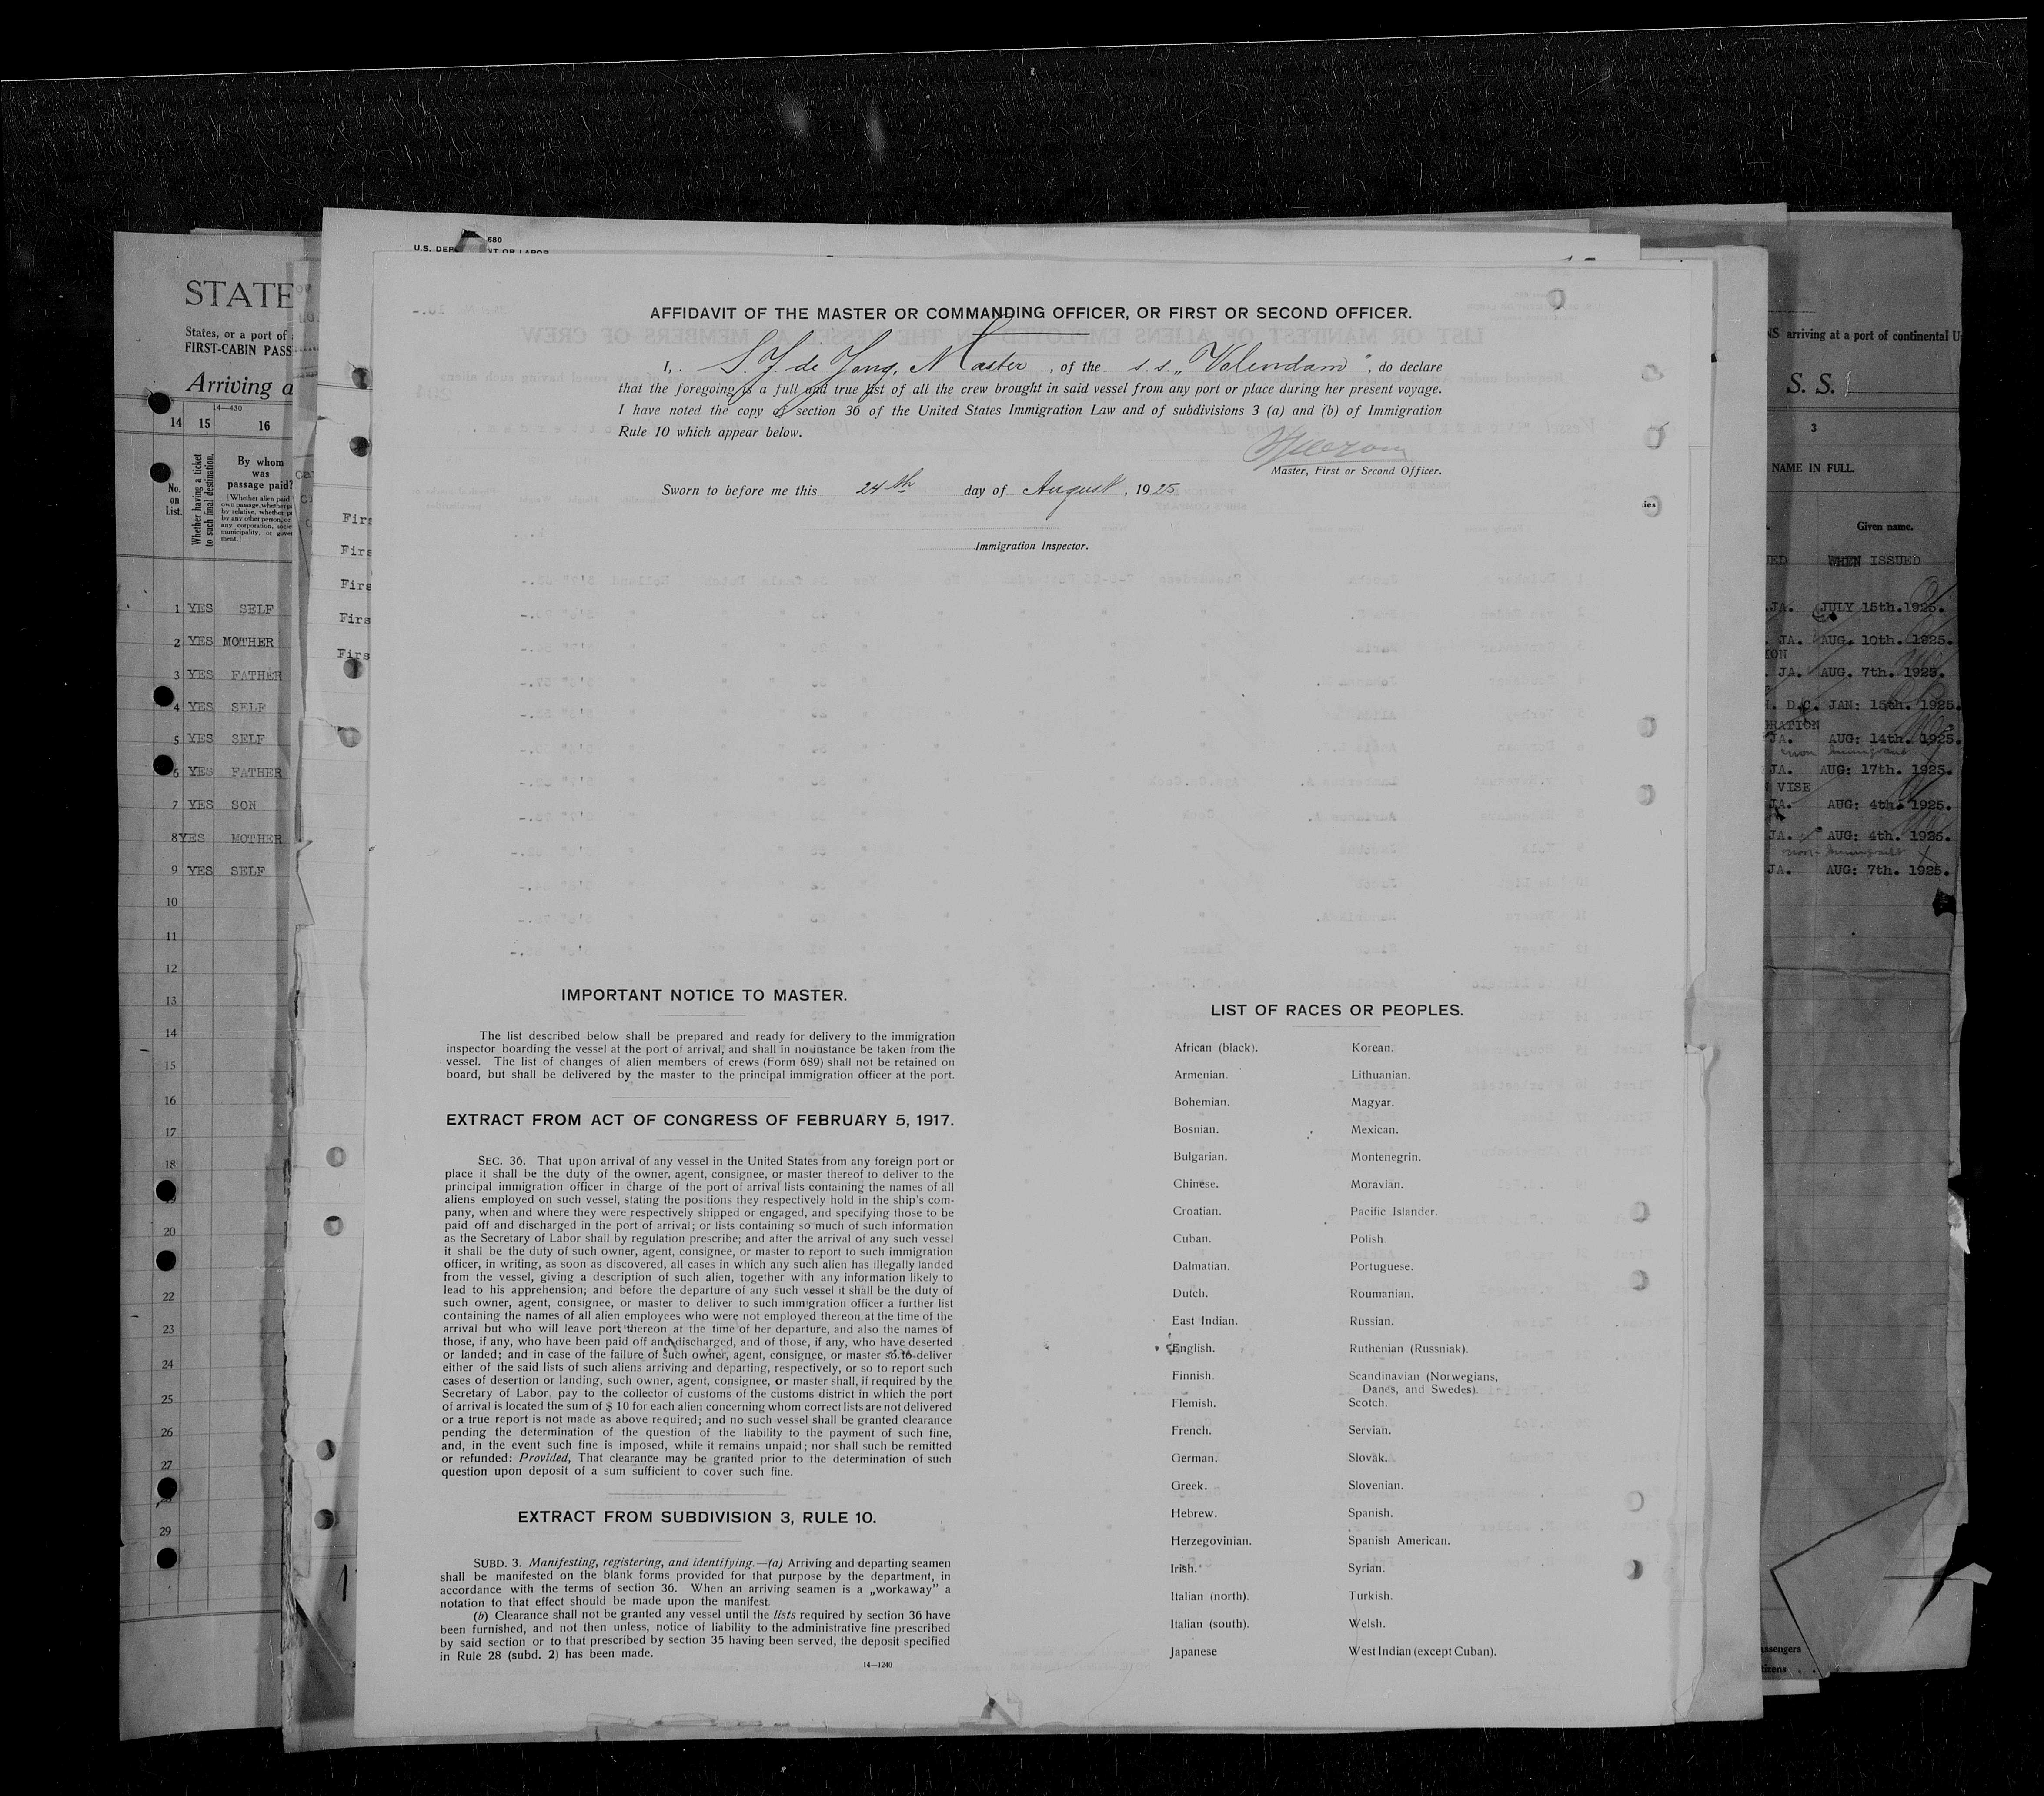 680
U.S. DEP
STATE
States, or a port of
FIRST-CABIN PASS
Arriving a
14—430
14 15 16
No. on List.
Whether having a ticket to such final destination.
By whom was passage paid?
1 YES SELF
2 YES MOTHER
3 YES FATHER
4 YES SELF
5 YES SELF
6 YES FATHER
7 YES SON
8 YES MOTHER
9 YES SELF
10
11
12
13
14
15
16
17
18
20
21
22
23
24
25
26
27
29
Firs
Firs
Firs
Firs
Firs
AFFIDAVIT OF THE MASTER OR COMMANDING OFFICER, OR FIRST OR SECOND OFFICER.
I, S. J. de Jong, Master, of the s.s. „Volendam", do declare
that the foregoing is a full and true list of all the crew brought in said vessel from any port or place during her present voyage.
I have noted the copy of section 36 of the United States Immigration Law and of subdivisions 3 (a) and (b) of Immigration
Rule 10 which appear below.
Master, First or Second Officer.
Sworn to before me this 24th day of August, 1925
Immigration Inspector.
IMPORTANT NOTICE TO MASTER.
The list described below shall be prepared and ready for delivery to the immigration
inspector boarding the vessel at the port of arrival, and shall in no instance be taken from the
vessel. The list of changes of alien members of crews (Form 689) shall not be retained on
board, but shall be delivered by the master to the principal immigration officer at the port.
EXTRACT FROM ACT OF CONGRESS OF FEBRUARY 5, 1917.
SEC. 36. That upon arrival of any vessel in the United States from any foreign port or
place it shall be the duty of the owner, agent, consignee, or master thereof to deliver to the
principal immigration officer in charge of the port of arrival lists containing the names of all
aliens employed on such vessel, stating the positions they respectively hold in the ship's com-
pany, when and where they were respectively shipped or engaged, and specifying those to be
paid off and discharged in the port of arrival; or lists containing so much of such information
as the Secretary of Labor shall by regulation prescribe; and after the arrival of any such vessel
it shall be the duty of such owner, agent, consignee, or master to report to such immigration
officer, in writing, as soon as discovered, all cases in which any such alien has illegally landed
from the vessel, giving a description of such alien, together with any information likely to
lead to his apprehension; and before the departure of any such vessel it shall be the duty of
such owner, agent, consignee, or master to deliver to such immigration officer a further list
containing the names of all alien employees who were not employed thereon at the time of the
arrival but who will leave port thereon at the time of her departure, and also the names of
those, if any, who have been paid off and discharged, and of those, if any, who have deserted
or landed; and in case of the failure of such owner, agent, consignee, or master so to deliver
either of the said lists of such aliens arriving and departing, respectively, or so to report such
cases of desertion or landing, such owner, agent, consignee, or master shall, if required by the
Secretary of Labor, pay to the collector of customs of the customs district in which the port
of arrival is located the sum of $ 10 for each alien concerning whom correct lists are not delivered
or a true report is not made as above required; and no such vessel shall be granted clearance
pending the determination of the question of the liability to the payment of such fine,
and, in the event such fine is imposed, while it remains unpaid; nor shall such be remitted
or refunded: Provided, That clearance may be granted prior to the determination of such
question upon deposit of a sum sufficient to cover such fine.
EXTRACT FROM SUBDIVISION 3, RULE 10.
SUBD. 3. Manifesting, registering, and identifying.—(a) Arriving and departing seamen
shall be manifested on the blank forms provided for that purpose by the department, in
accordance with the terms of section 36. When an arriving seamen is a „workaway" a
notation to that effect should be made upon the manifest.
(b) Clearance shall not be granted any vessel until the lists required by section 36 have
been furnished, and not then unless, notice of liability to the administrative fine prescribed
by said section or to that prescribed by section 35 having been served, the deposit specified
in Rule 28 (subd. 2) has been made.
14—1240
LIST OF RACES OR PEOPLES.
African (black). Korean.
Armenian. Lithuanian.
Bohemian. Magyar.
Bosnian. Mexican.
Bulgarian. Montenegrin.
Chinese. Moravian.
Croatian. Pacific Islander.
Cuban. Polish.
Dalmatian. Portuguese.
Dutch. Roumanian.
East Indian. Russian.
English. Ruthenian (Russniak).
Finnish. Scandinavian (Norwegians,
Danes, and Swedes).
Flemish. Scotch.
French. Servian.
German. Slovak.
Greek. Slovenian.
Hebrew. Spanish.
Herzegovinian. Spanish American.
Irish. Syrian.
Italian (north). Turkish.
Italian (south). Welsh.
Japanese West Indian (except Cuban).
NS arriving at a port of continental U
S. S.
3
NAME IN FULL.
Given name.
WHEN ISSUED
JA. JULY 15th.1925.
JA. AUG. 10th. 1925.
JA. AUG. 7th. 1925.
D.C. JAN: 15th. 1925.
GRATION
JA. AUG: 14th. 1925.
JA. AUG: 17th. 1925.
VISE
JA. AUG: 4th. 1925.
JA. AUG: 4th. 1925.
JA. AUG: 7th. 1925.